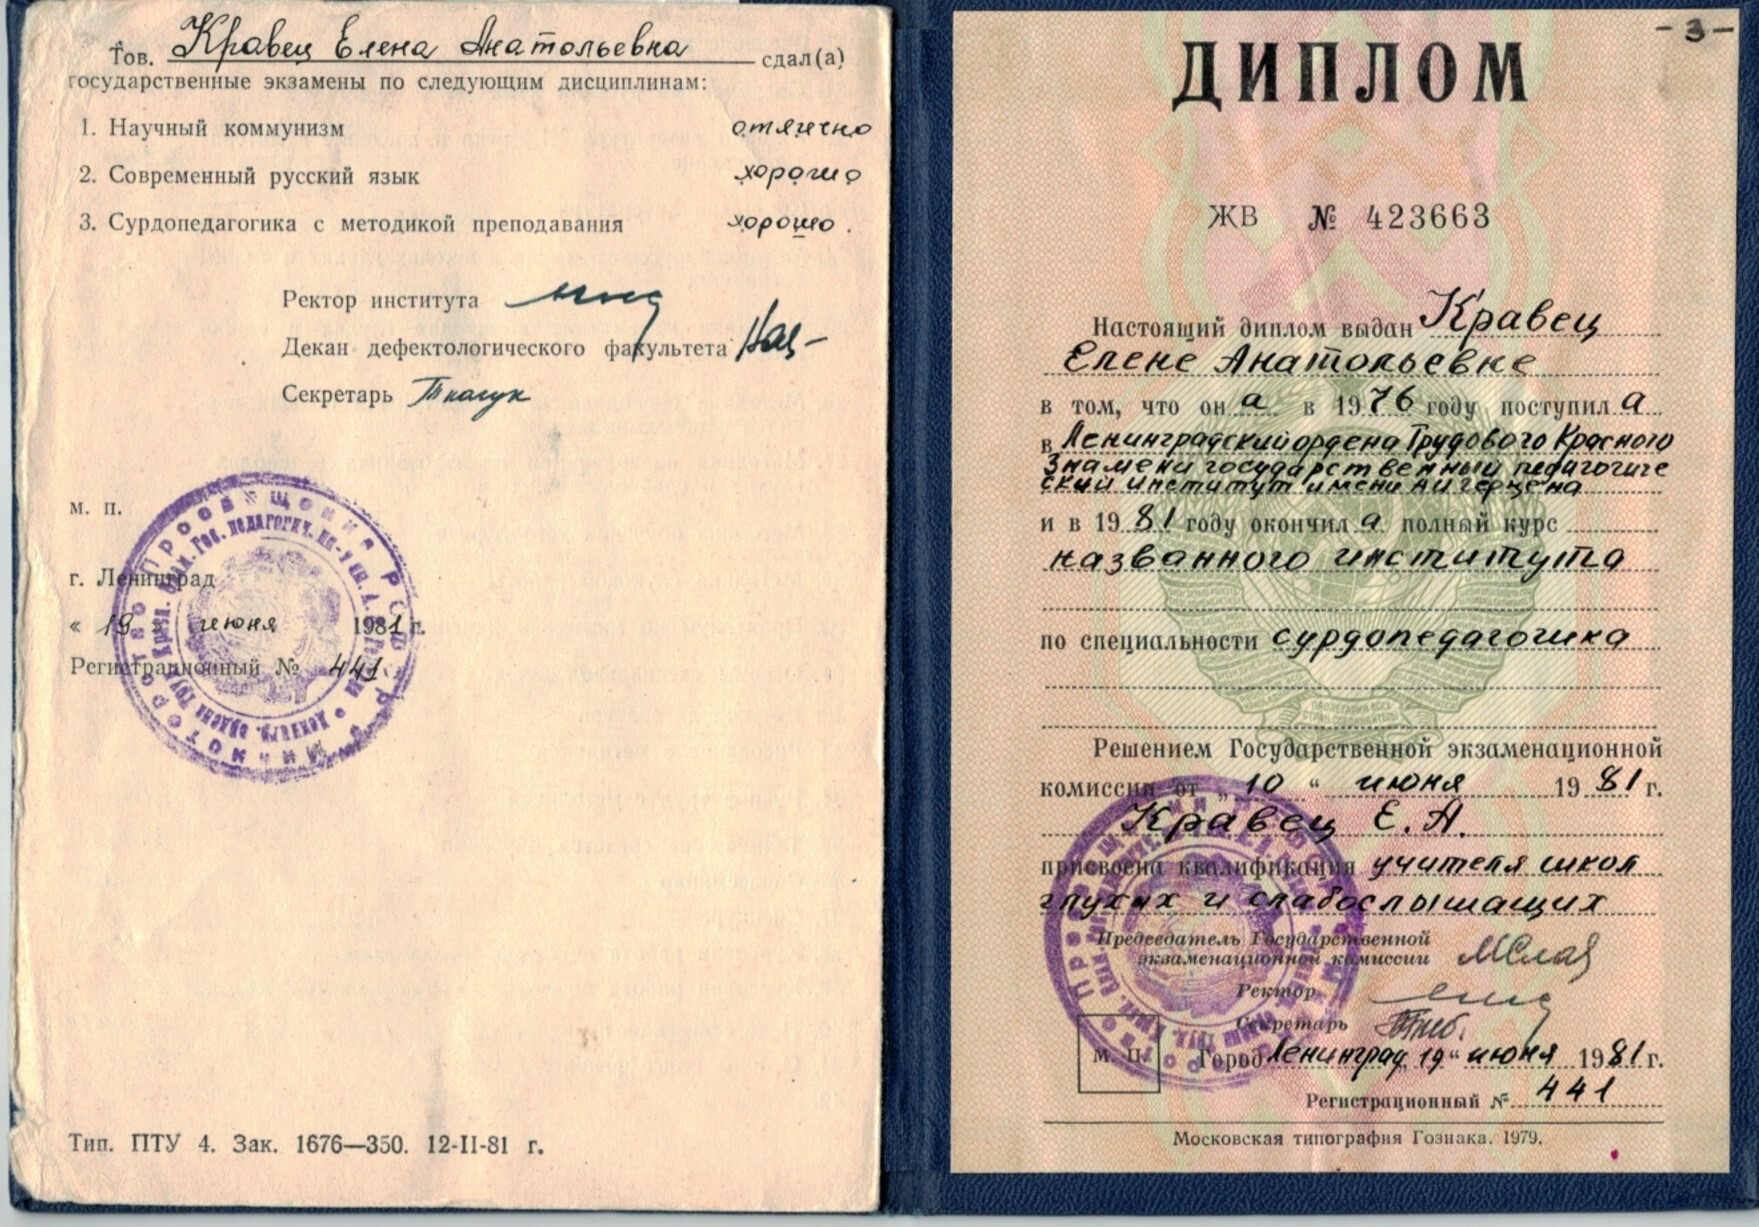 Тов. Кравец Елена Анатольевна сдал(а)
государственные экзамены по следующим дисциплинам:
1. Научный коммунизм отлично
2. Современный русский язык хорошо
3. Сурдопедагогика с методикой преподавания хорошо.
Ректор института
Декан дефектологического факультета
Секретарь
м. п.
г. Ленинград
« 19 » июня 1981 г.
Регистрационный № 441
Тип. ПТУ 4. Зак. 1676—350. 12-II-81 г.
- 3 -
ДИПЛОМ
ЖВ № 423663
Настоящий диплом выдан Кравец
Елене Анатольевне
в том, что он а в 1976 году поступил а
в Ленинградский ордена Трудового Красного
Знамени государственный педагогиче
ский институт имени А И Герцена
и в 1981 году окончил а полный курс
названного института
по специальности сурдопедагогика
ПРОЛЕТАРИИ ВСЕХ
СТРАН, СОЕДИНЯЙТЕСЬ!
Решением Государственной экзаменационной
комиссии от „ 10 “ июня 1981 г.
Кравец Е. А.
присвоена квалификация учителя школ
глухих и слабослышащих
Председатель Государственной
экзаменационной комиссии
Ректор
Секретарь
М. П.
Город Ленинград, 19 “ июня 1981 г.
Регистрационный № 441
Московская типография Гознака. 1979.